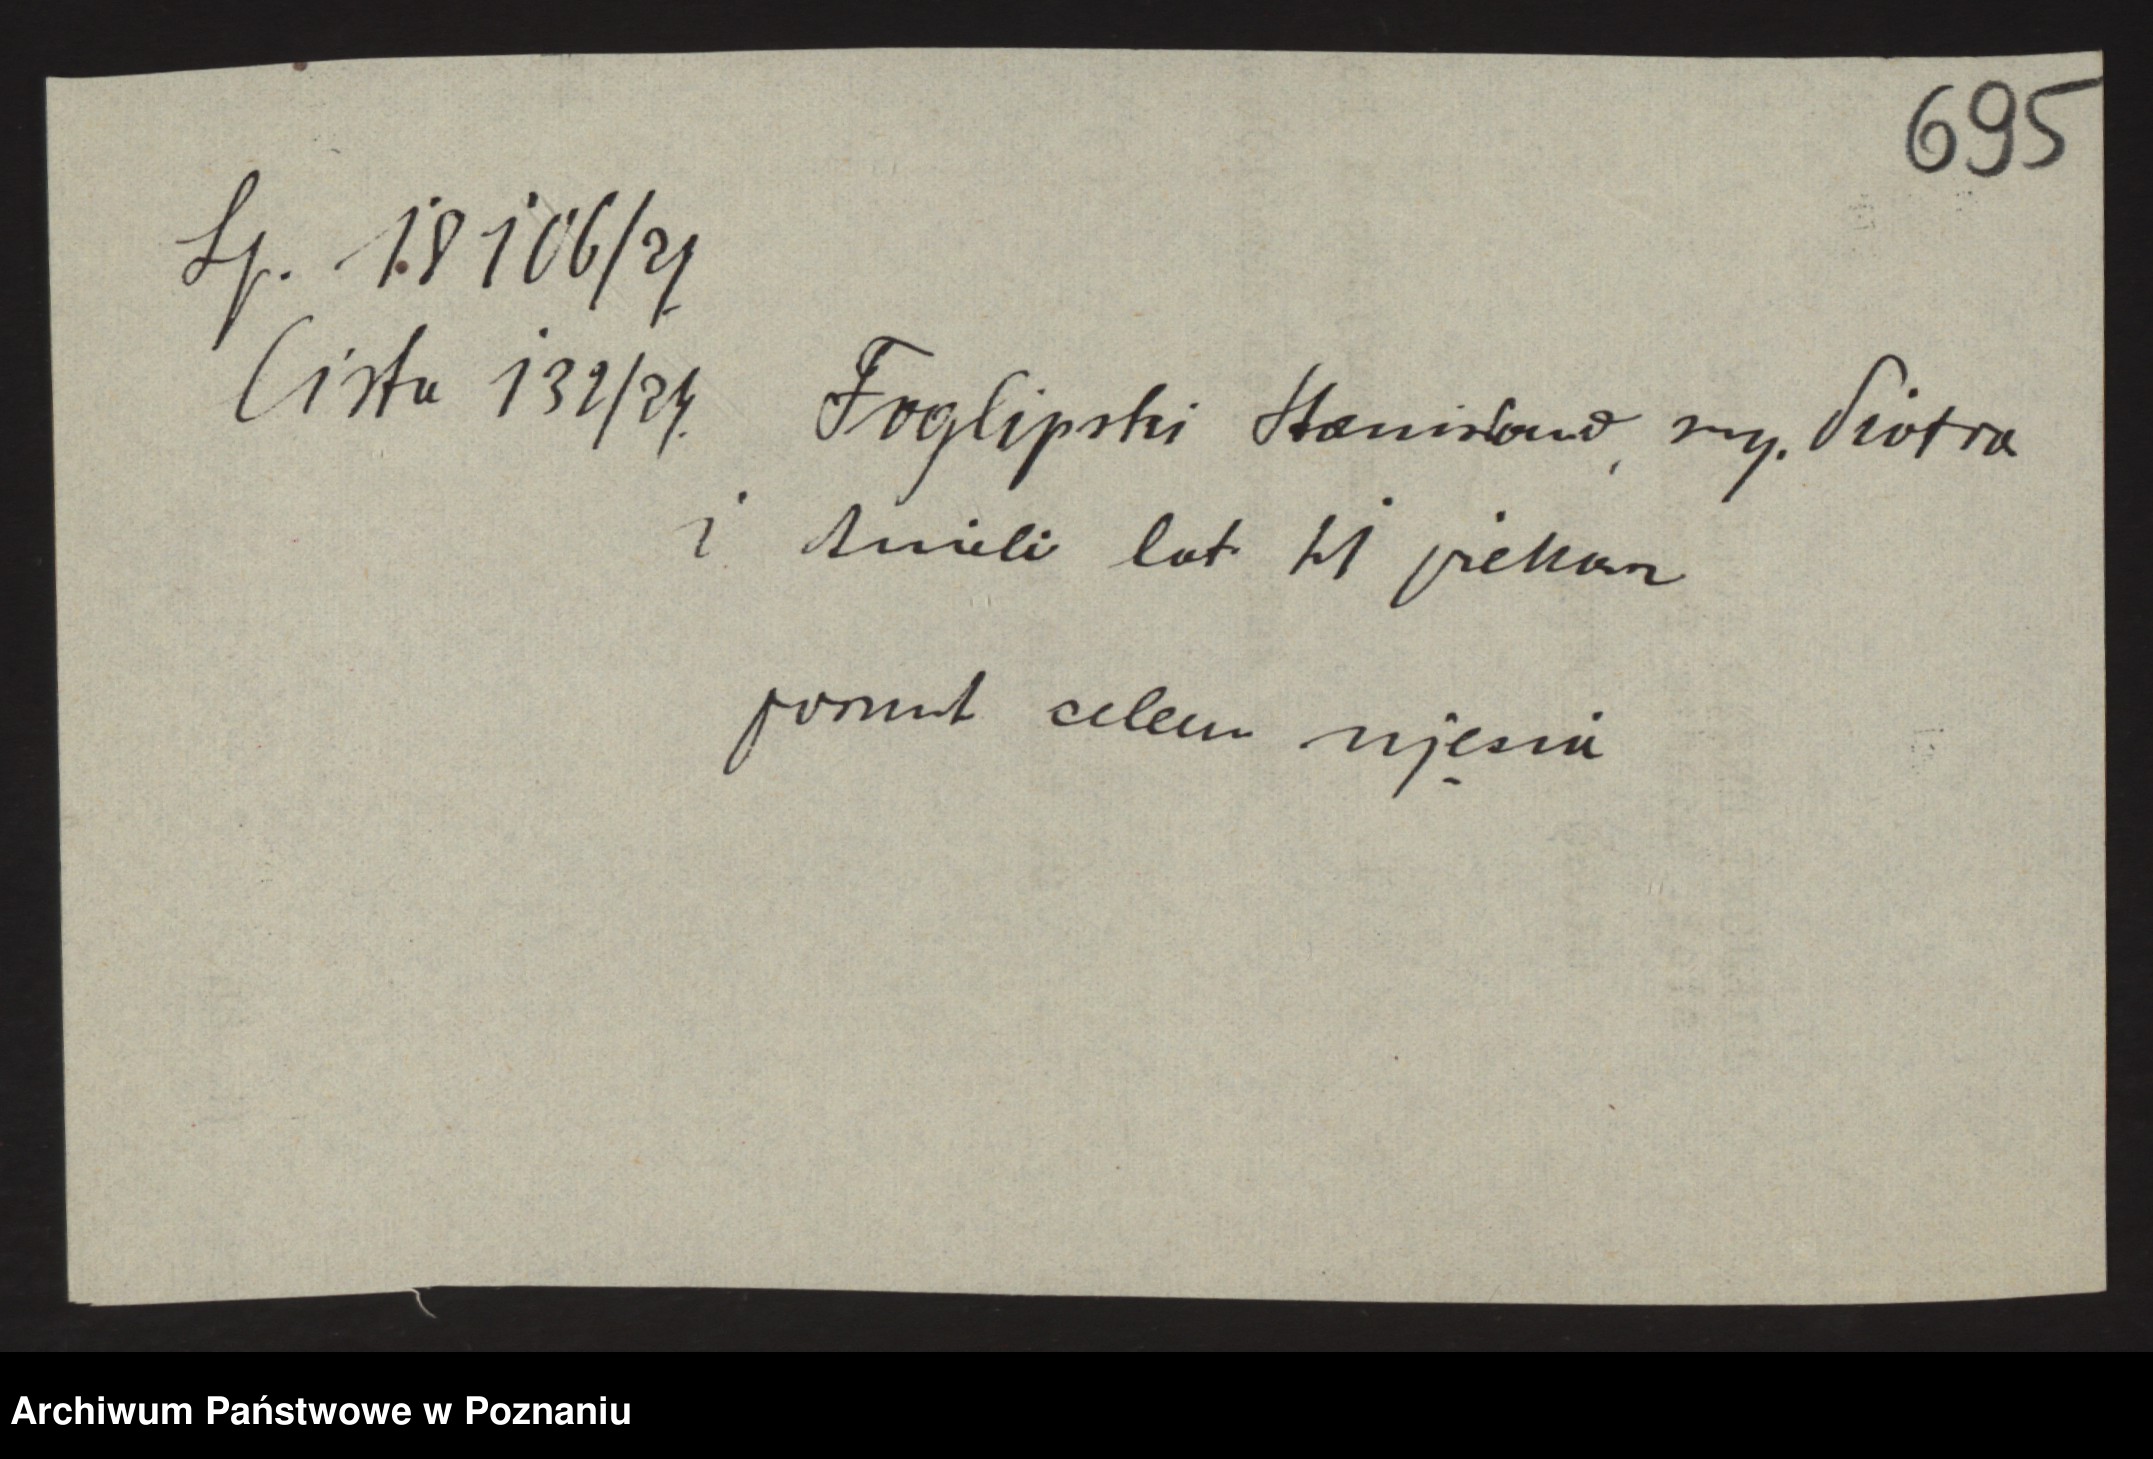 695
Lp. 18106/21
Lista 132/21. Foglipski Stanisław, sy. Piotra
i Anieli lat 21 piekarz
poszuk celem ujęcia
Archiwum Państwowe w Poznaniu